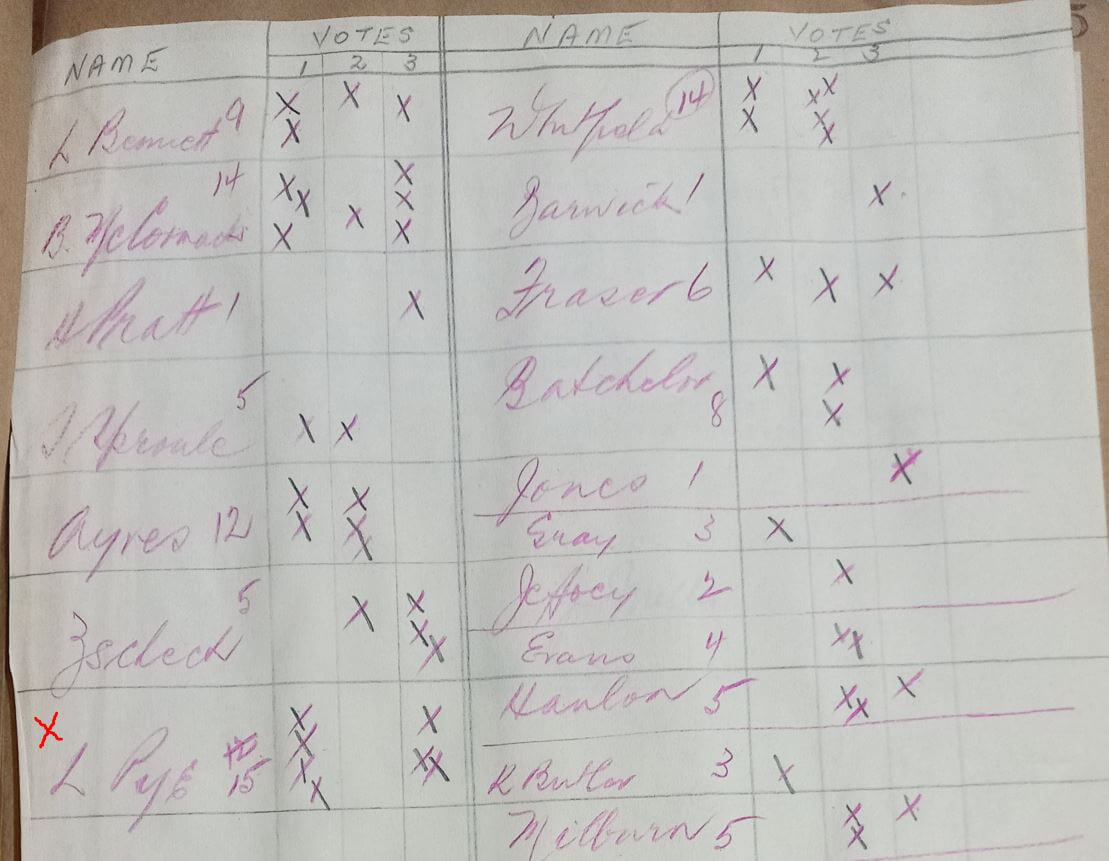 NAME VOTES NAME VOTES
1 2 3 1 2 3
L Bennett 9 X X X X
B. McCormack 14 X X X X X X X
H Pratt 1 X
Sproule 5 X X
Ayres 12 X X X X X
Zschech 5 X X X X
X L Pyle 12 15 X X X X X X X
14 X X X X X X
Barwick 1 X
Fraser 6 X X X
Batchelor 8 X X X
Jones 1 X
Gray 3 X
2 X
Evans 4 X X
Hanlon 5 X X X
R Butler 3 X
Milburn 5 X X X
5